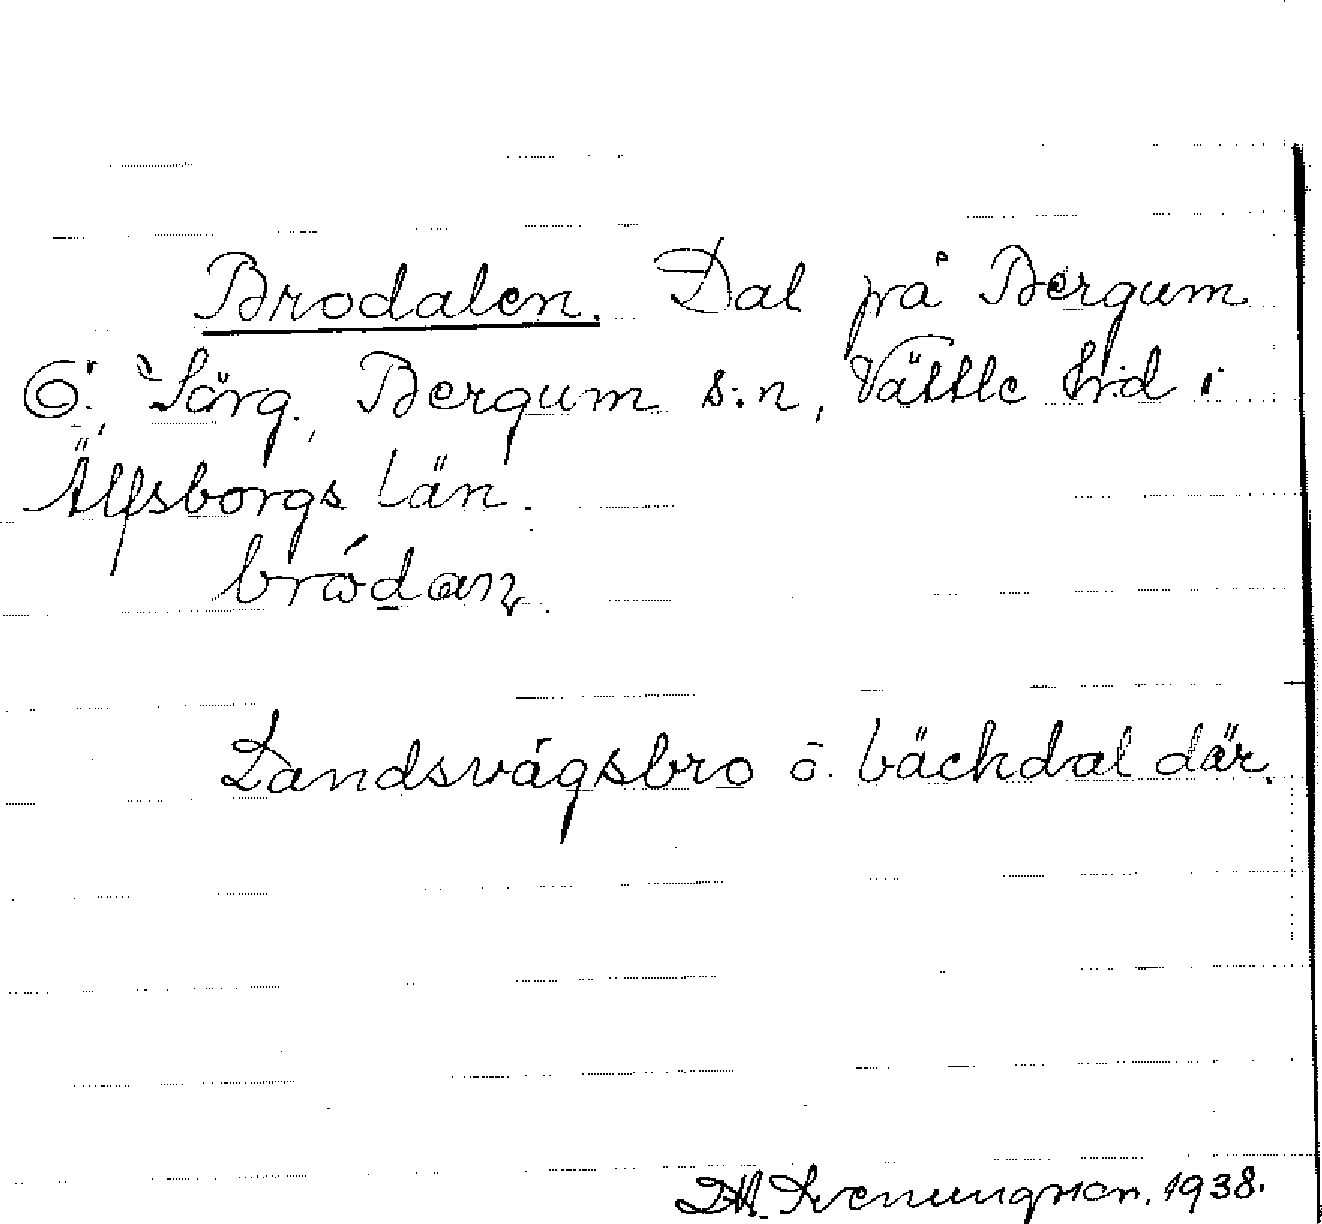 Brodalen. Dal på Bergum
6:, Sörg., Bergum s:n, Vättle hd i
Älfsborgs län.
bródan.
Landsvägsbro o. bäckdal där.
Svenungson, 1938.